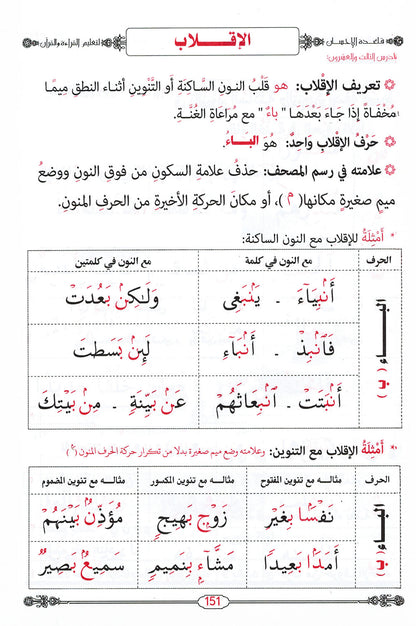 قاعدة الإحسان
الإقلاب
لتعليم القراءة والقرآن
الدرس الثالث والعشرون:
تعريف الإقْلاب: هو قَلْبُ النونِ السَّاكِنَةِ أو التَّنْوِينِ أثناء النطقِ مِيمًا
مُخْفَاةً إذَا جَاءَ بَعْدَهَا " باءٌ " مع مُرَاعَاةِ الغُنَّةِ.
حَرْفُ الإقْلابِ وَاحِدٌ: هُوَ البَاءُ.
علامته في رسم المصحف: حذفُ علامةِ السكونِ من فوقِ النونِ ووضعُ
ميمٍ صغيرةٍ مكانها( م )، أو مكانَ الحركةِ الأخيرةِ من الحرفِ المنونِ.
* أَمْثِلَةُ للإقلاب مع النون الساكنة:
الحرف مع النون في كلمة مع النون في كلمتين
البـــاء (ب)
أَنۢبِيَآءَ ـ يَنۢبَغِى وَلَـٰكِنۢ بَعُدَتْ
فَٱنۢبِذْ ـ أَنۢبَآءِ لَئِنۢ بَسَطتَ
أَنۢبَتَتْ ـ ٱنۢبِعَاثَهُمْ عَنۢ بَيِّنَةٍ ـ مِنۢ بَيْتِكَ
* أَمْثِلَةُ الإقلاب مع التنوين: وعلامته وضع ميم صغيرة بدلا من تكرار حركة الحرف المنون (م)
الحرف مثاله مع تنوين المفتوح مثاله مع تنوين المكسور مثاله مع تنوين المضموم
البـــاء (ب)
نَفْسَۢا بِغَيْرِ زَوْجِۭ بَهِيجٍ مُؤَذِّنُۢ بَيْنَهُمْ
أَمَدَۢا بَعِيدًا مَشَّآءِۭ بِنَمِيمٍ سَمِيعُۢ بَصِيرٌ
151